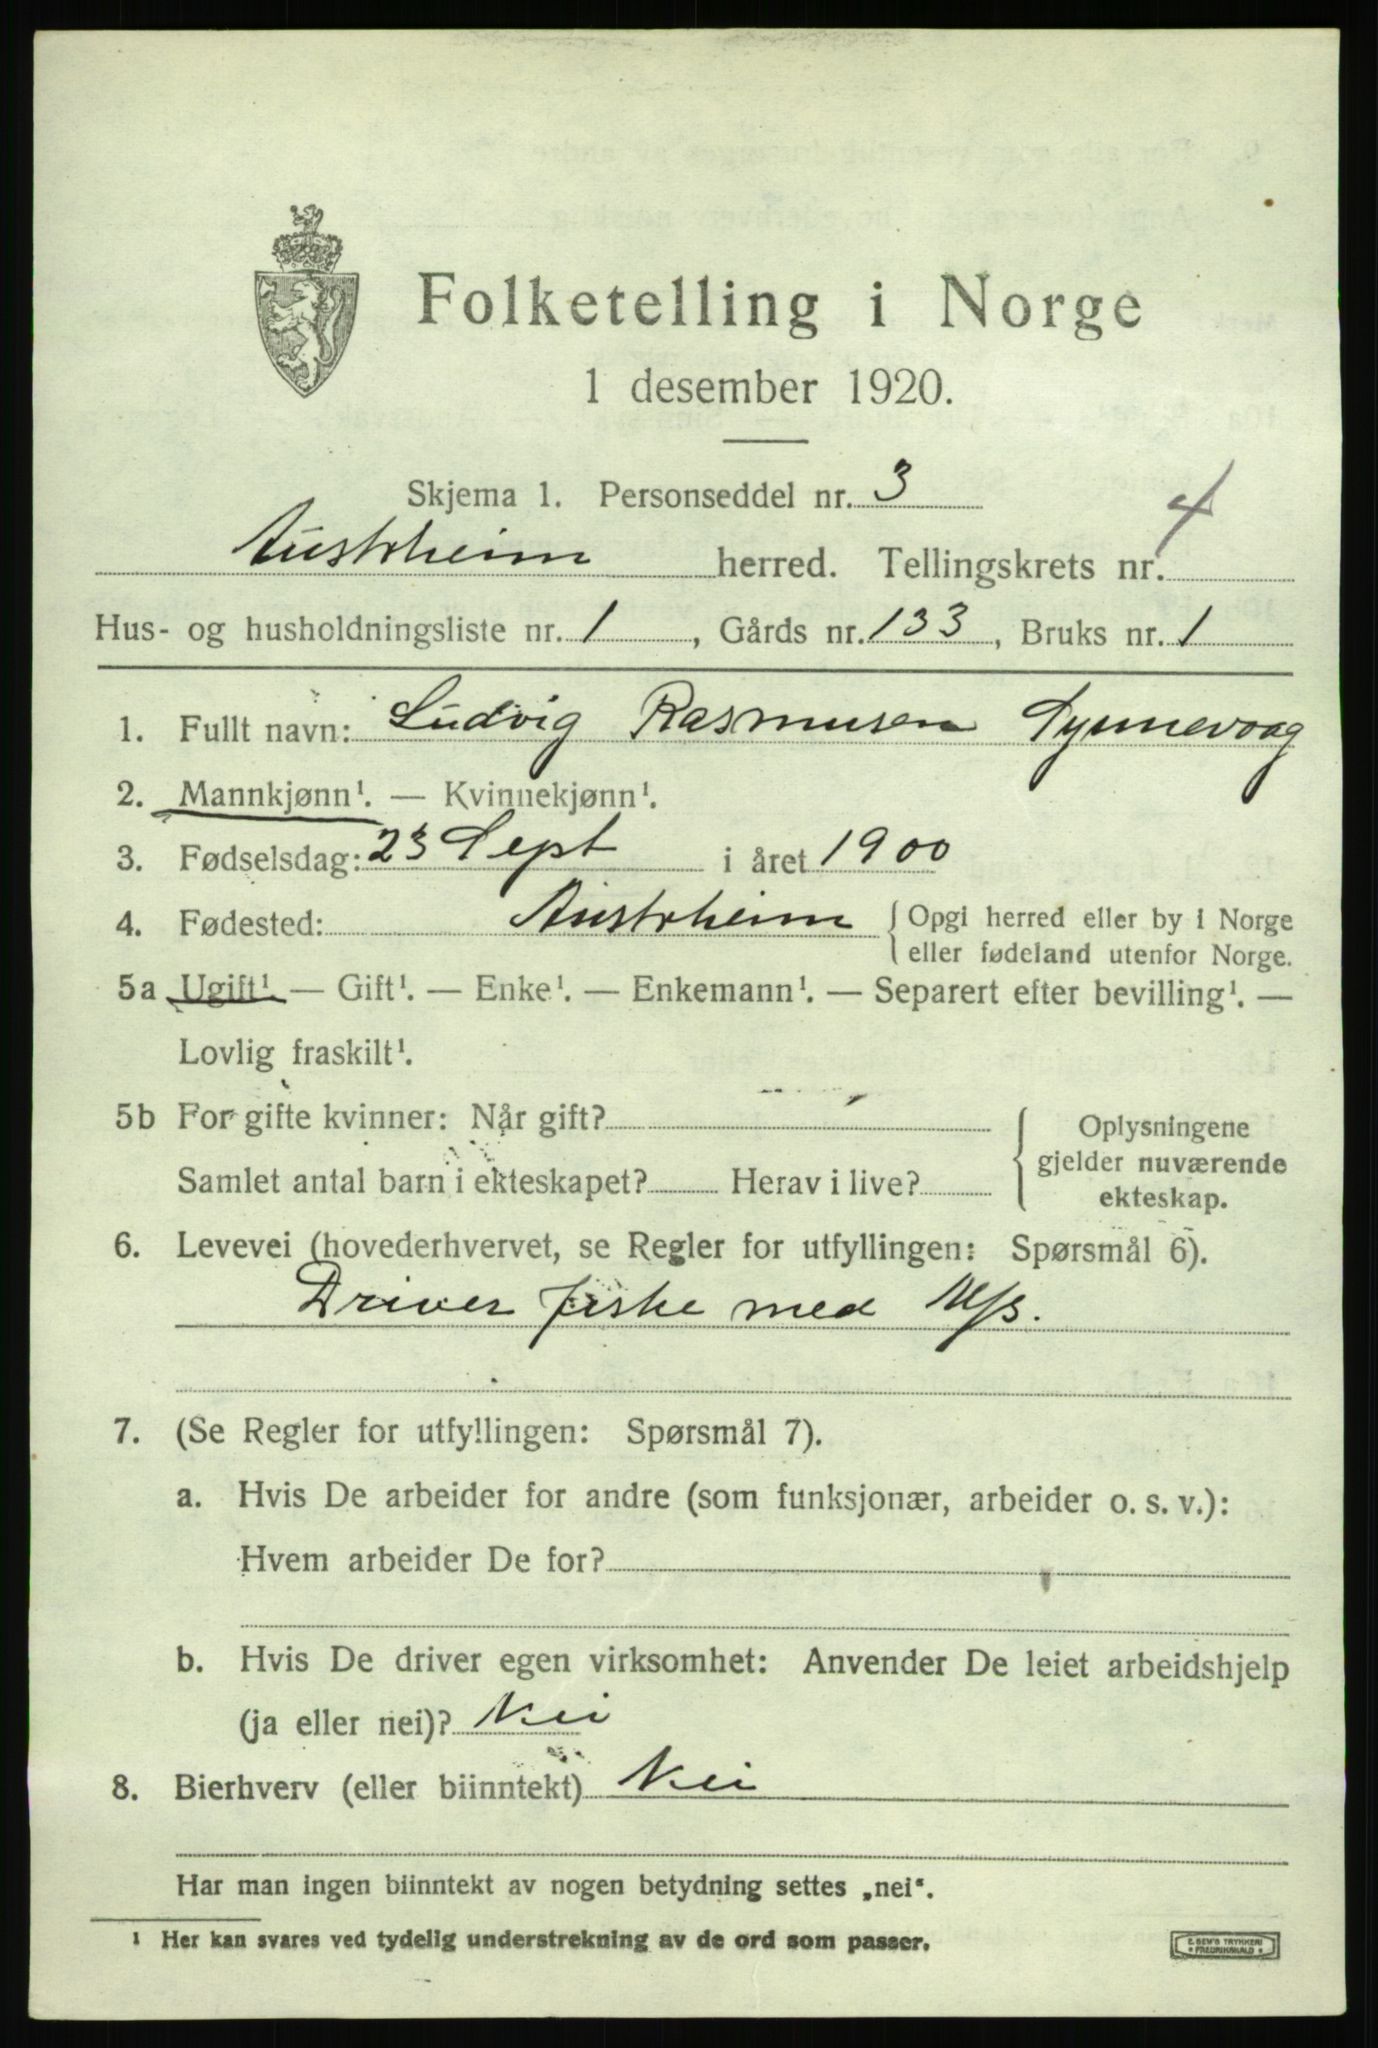 Folketelling i Norge
1 desember 1920.
Skjema 1. Personseddel nr. 3
Austrheim herred. Tellingskrets nr. 4
Hus- og husholdningsliste nr. 1, Gårds nr. 133, Bruks nr. 1
1. Fullt navn: Ludvig Rasmusen Synnevaag
2. Mannkjønn¹. — Kvinnekjønn¹.
3. Fødselsdag: 23 Sept i året 1900
4. Fødested: Austrheim { Opgi herred eller by i Norge
eller fødeland utenfor Norge.
5a Ugift¹. — Gift¹. — Enke¹. — Enkemann¹. — Separert efter bevilling¹. —
Lovlig fraskilt¹.
5b For gifte kvinner: Når gift?
Samlet antal barn i ekteskapet? Herav i live?
Oplysningene
gjelder nuværende
ekteskap.
6. Levevei (hovederhvervet, se Regler for utfyllingen: Spørsmål 6).
Driver fiske med M/B.
7. (Se Regler for utfyllingen: Spørsmål 7).
a. Hvis De arbeider for andre (som funksjonær, arbeider o. s. v.):
Hvem arbeider De for?
b. Hvis De driver egen virksomhet: Anvender De leiet arbeidshjelp
(ja eller nei)? Nei
8. Bierhverv (eller biinntekt) Nei
Har man ingen biinntekt av nogen betydning settes „nei“.
¹ Her kan svares ved tydelig understrekning av de ord som passer.
E. SEM'S TRYKKERI
* FREDRIKSHALD *